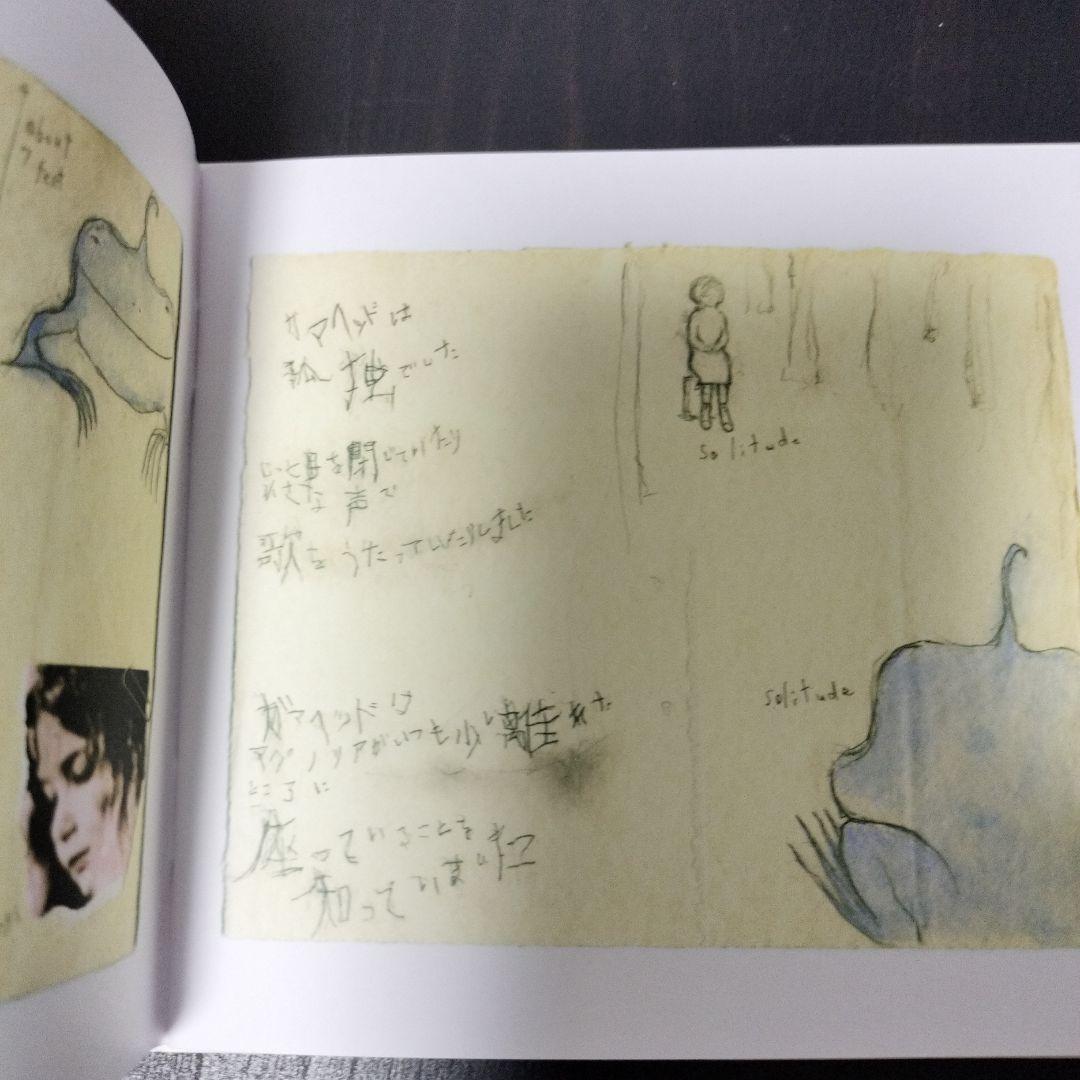 about
7 feet
ガマヘッドは
孤独でした
目を閉じていたり
小さな声で
歌をうたっていたりしました
solitude
solitude
ガマヘッドは
マグノリアがいつも少し離れた
ところに
座っていることを
知っていました